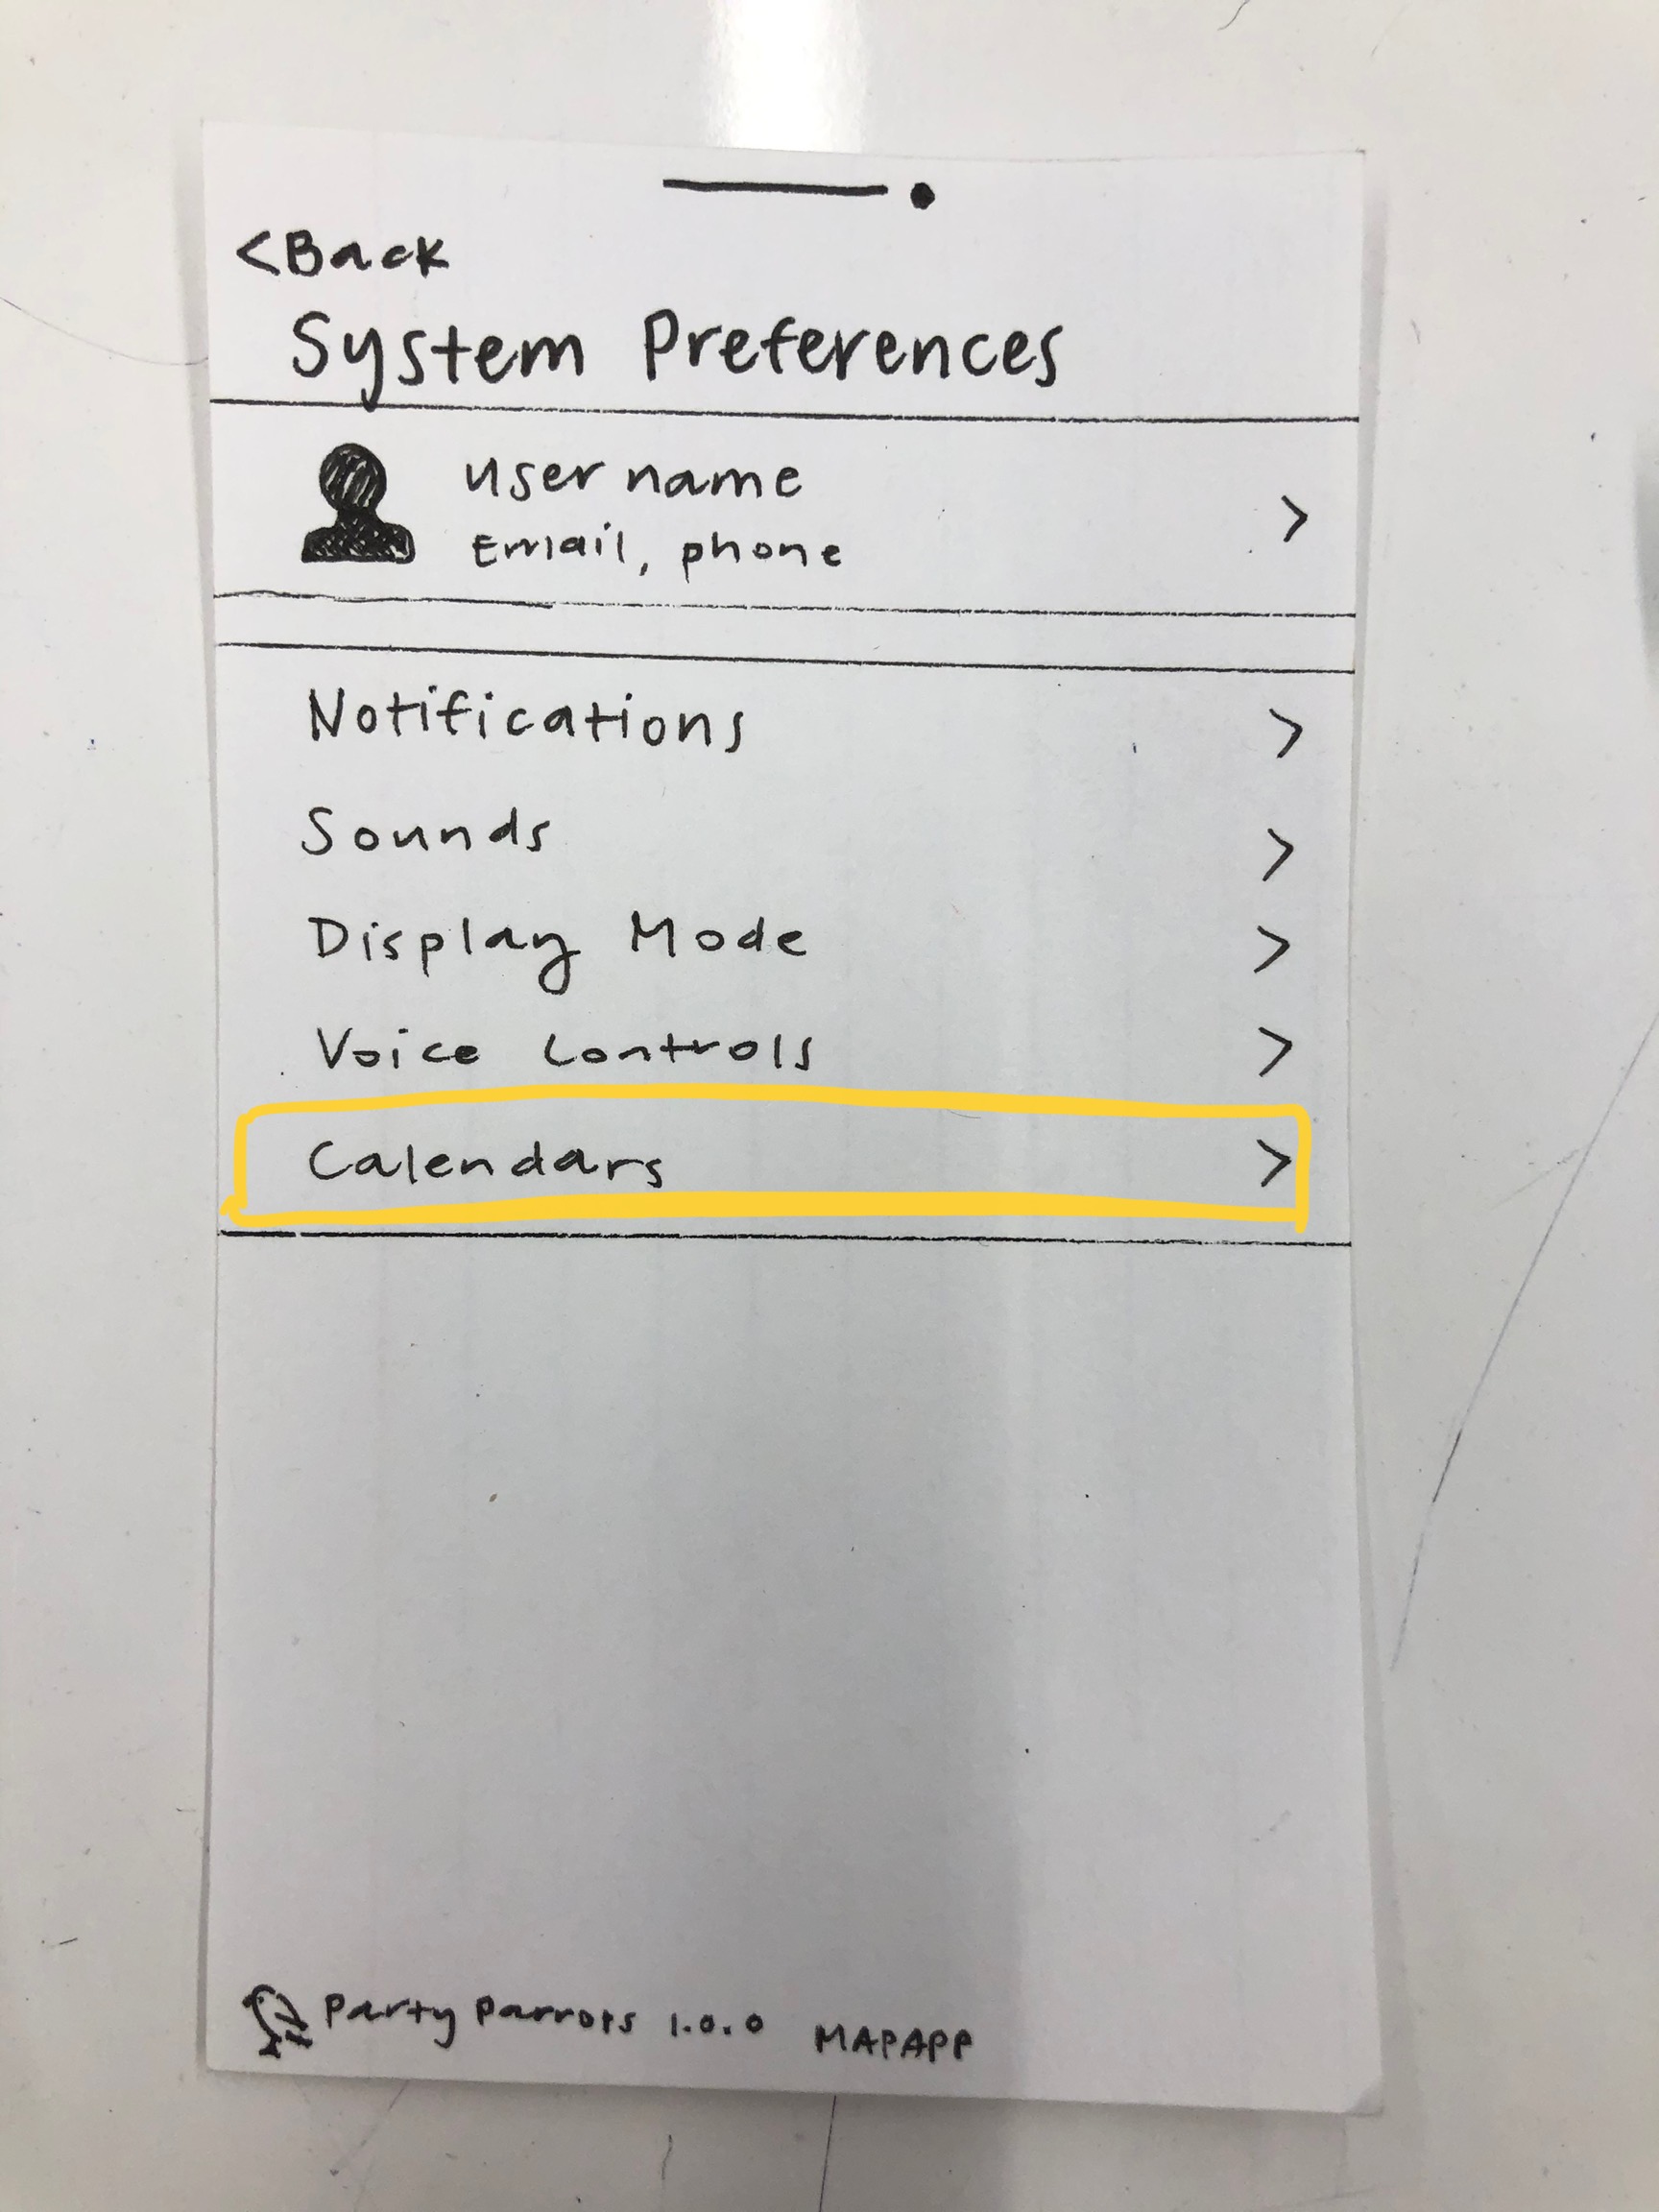 <Back
System Preferences
username
Email, phone
>
Notifications >
Sounds >
Display Mode >
Voice Controls >
Calendars >
Party Parrots 1.0.0 MAPAPP